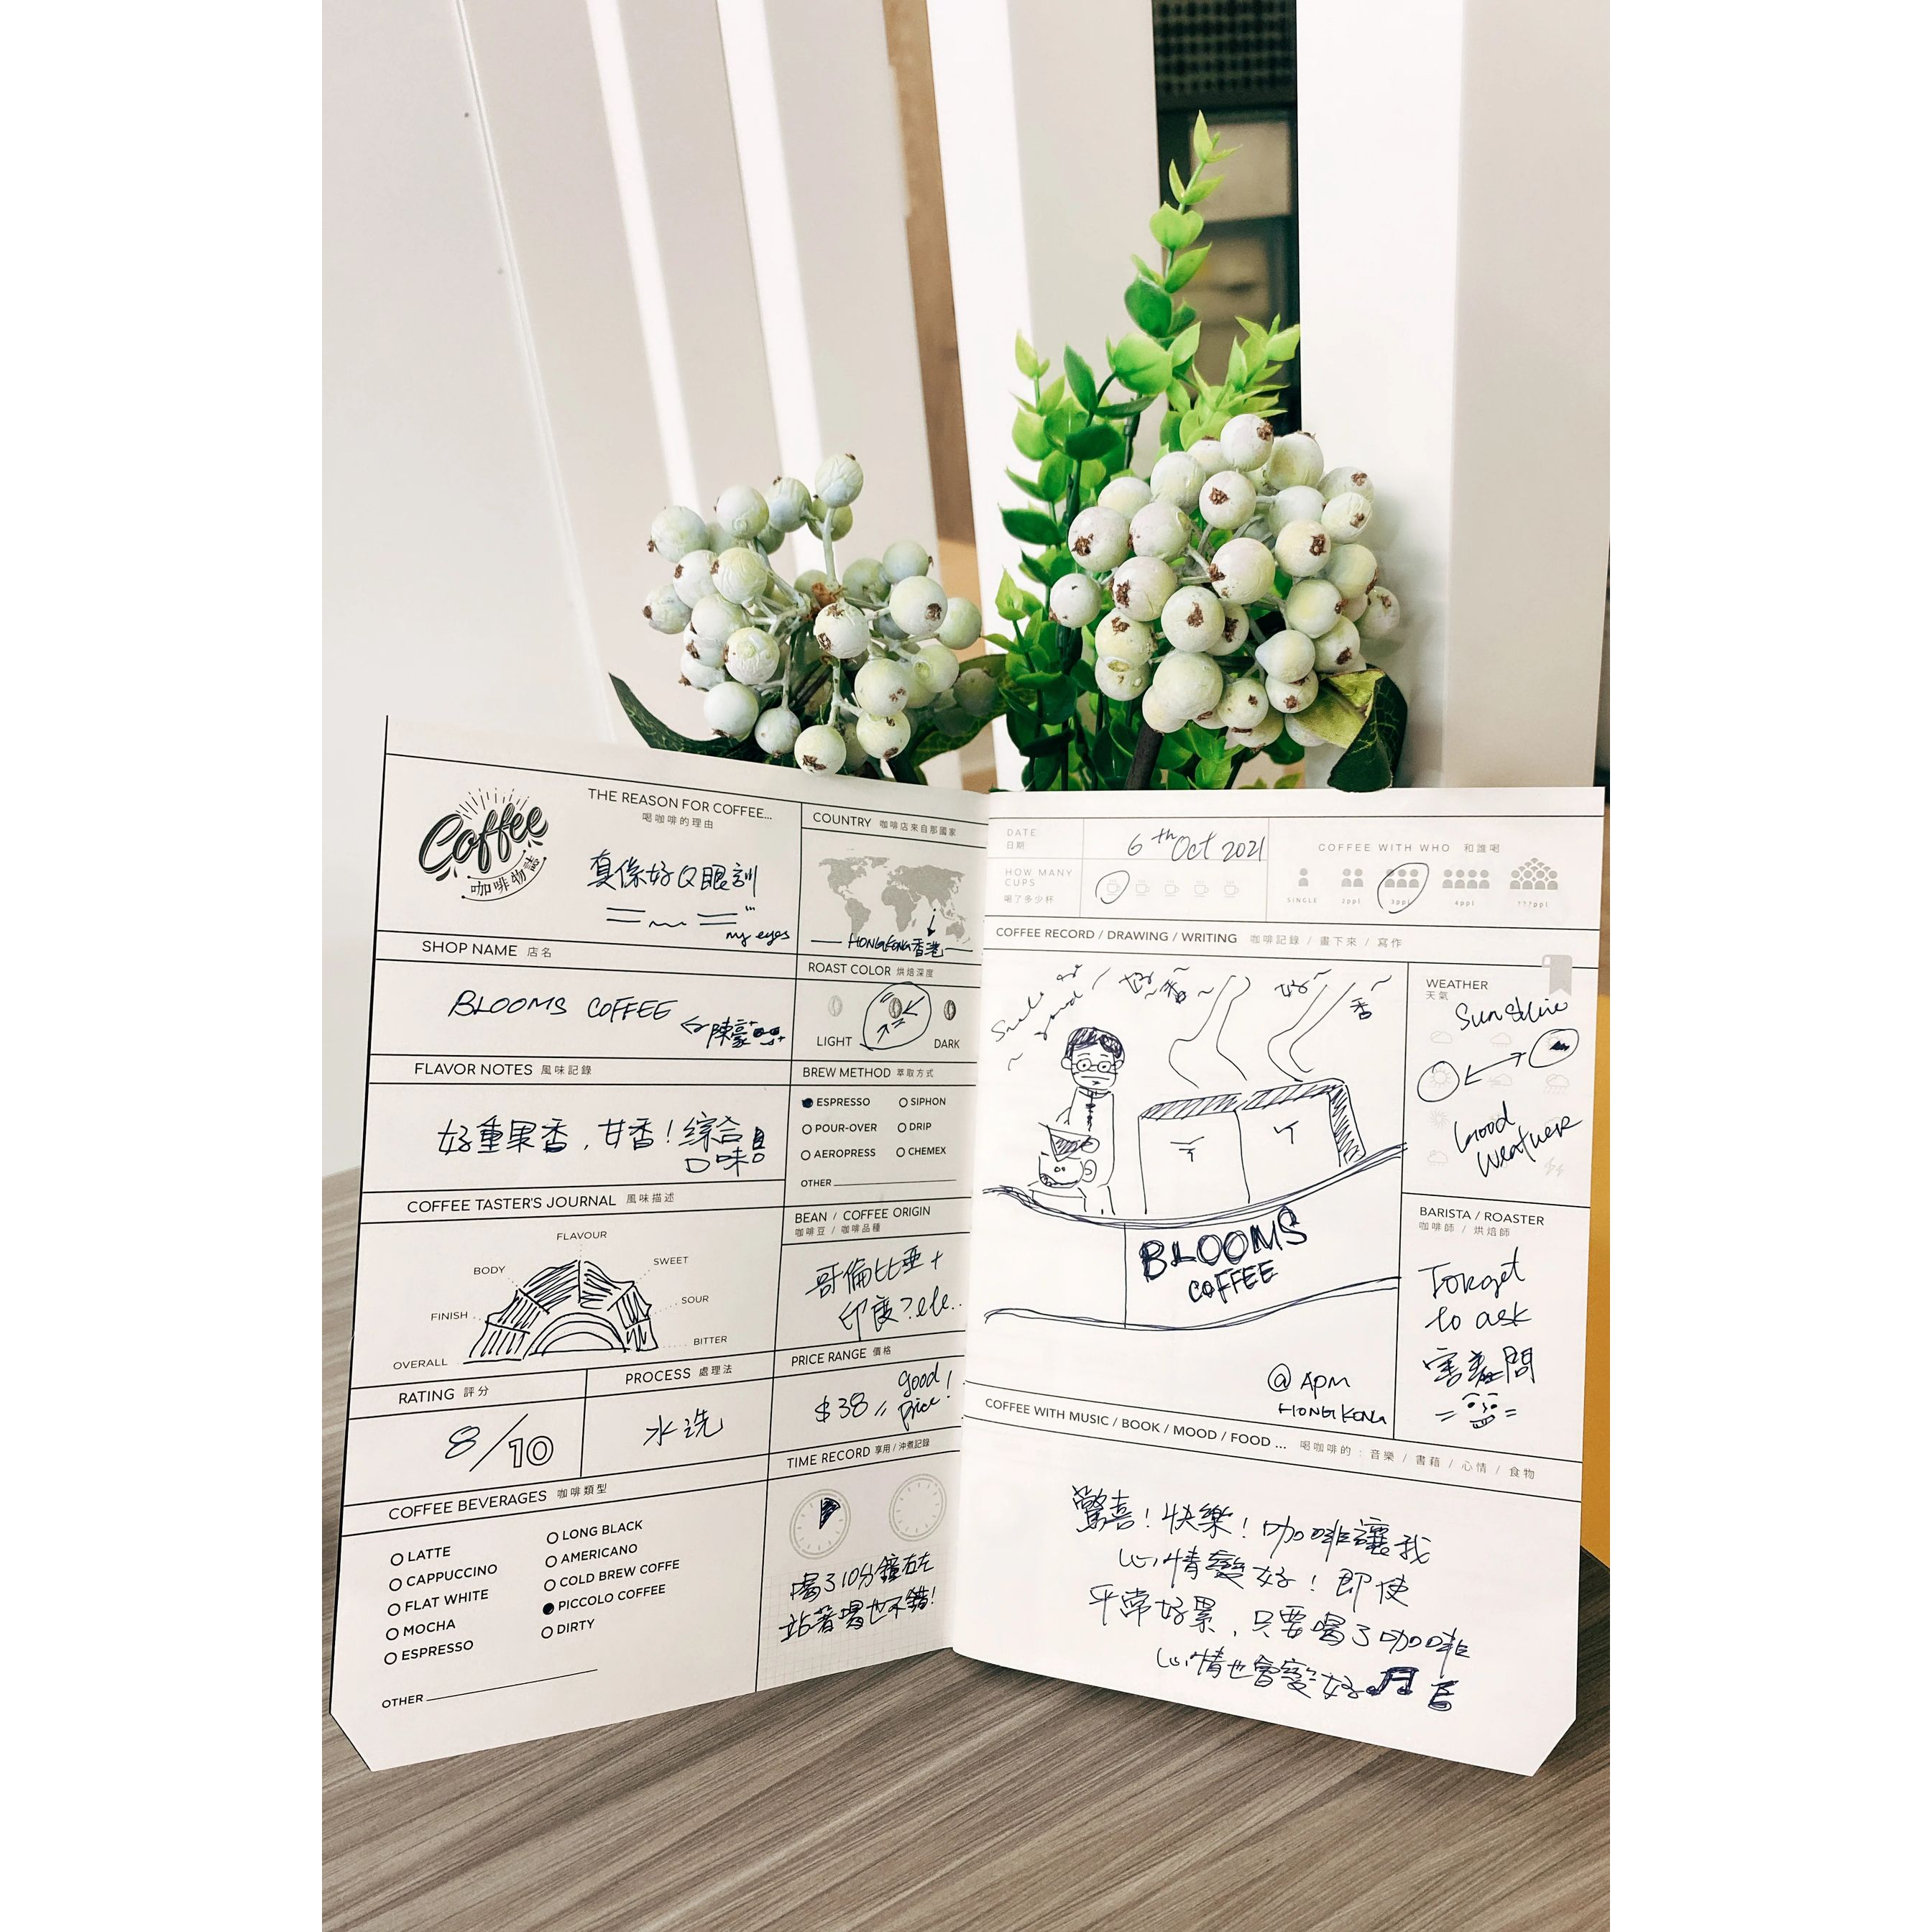 Coffee
咖啡物誌
THE REASON FOR COFFEE...
喝咖啡的理由
真係好Q眼訓
my eyes
SHOP NAME 店名
BLOOMS COFFEE
陳豪
FLAVOR NOTES 風味記錄
好重果香，甘香！綜合
口味
COFFEE TASTER'S JOURNAL 風味描述
FLAVOUR
BODY
SWEET
FINISH
SOUR
OVERALL
BITTER
RATING 評分
8/10
PROCESS 處理法
水洗
COFFEE BEVERAGES 咖啡類型
LATTE
CAPPUCCINO
FLAT WHITE
MOCHA
ESPRESSO
LONG BLACK
AMERICANO
COLD BREW COFFE
PICCOLO COFFEE
DIRTY
OTHER
COUNTRY 咖啡店來自那國家
HONG KONG 香港
ROAST COLOR 烘焙深度
LIGHT DARK
BREW METHOD 萃取方式
ESPRESSO SIPHON
POUR-OVER DRIP
AEROPRESS CHEMEX
OTHER
BEAN / COFFEE ORIGIN
咖啡豆 / 咖啡品種
哥倫比亞+
印度？etc..
PRICE RANGE 價格
$38 good
price!
TIME RECORD 享用 / 沖煮記錄
喝了10分鐘右左
站著喝也不錯！
DATE
日期
6th Oct 2021
HOW MANY
CUPS
喝了多少杯
COFFEE WITH WHO 和誰喝
SINGLE 2ppl 3ppl 4ppl ???ppl
COFFEE RECORD / DRAWING / WRITING 咖啡記錄 / 畫下來 / 寫作
好香
好香
BLOOMS
COFFEE
@ APM
HONG KONG
WEATHER
天氣
Sunshine
Good
Weather
BARISTA / ROASTER
咖啡師 / 烘焙師
Forget
to ask
害羞問
COFFEE WITH MUSIC / BOOK / MOOD / FOOD ... 喝咖啡的 : 音樂 / 書藉 / 心情 / 食物
驚喜！快樂！咖啡讓我
心情變好！即使
平常好累，只要喝了咖啡
心情也會變好